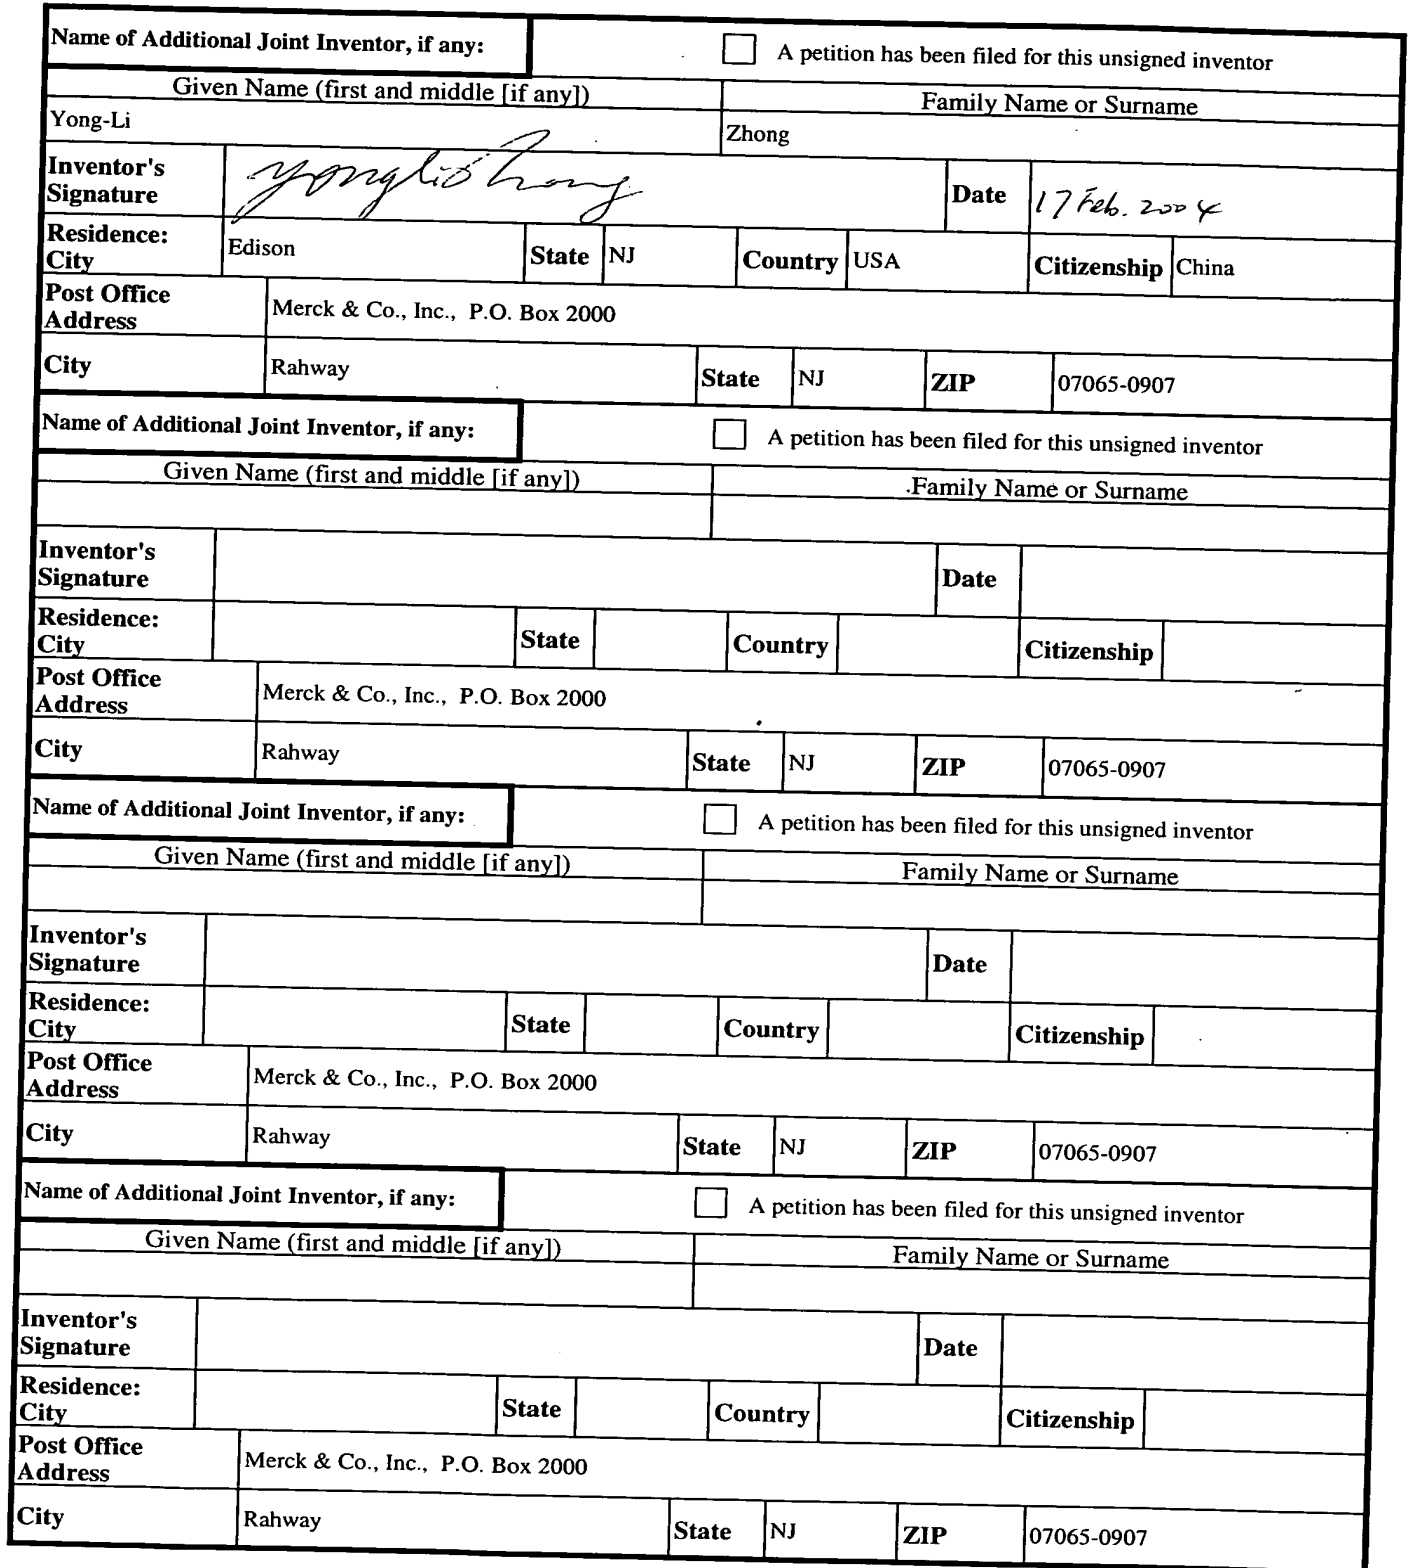 Name of Additional Joint Inventor, if any: A petition has been filed for this unsigned inventor
Given Name (first and middle [if any]) Family Name or Surname
Yong-Li Zhong
Inventor's Signature yongli Zhong Date 17 Feb. 2004
Residence: City Edison State NJ Country USA Citizenship China
Post Office Address Merck & Co., Inc., P.O. Box 2000
City Rahway State NJ ZIP 07065-0907
Name of Additional Joint Inventor, if any: A petition has been filed for this unsigned inventor
Given Name (first and middle [if any]) Family Name or Surname
Inventor's Signature Date
Residence: City State Country Citizenship
Post Office Address Merck & Co., Inc., P.O. Box 2000
City Rahway State NJ ZIP 07065-0907
Name of Additional Joint Inventor, if any: A petition has been filed for this unsigned inventor
Given Name (first and middle [if any]) Family Name or Surname
Inventor's Signature Date
Residence: City State Country Citizenship
Post Office Address Merck & Co., Inc., P.O. Box 2000
City Rahway State NJ ZIP 07065-0907
Name of Additional Joint Inventor, if any: A petition has been filed for this unsigned inventor
Given Name (first and middle [if any]) Family Name or Surname
Inventor's Signature Date
Residence: City State Country Citizenship
Post Office Address Merck & Co., Inc., P.O. Box 2000
City Rahway State NJ ZIP 07065-0907